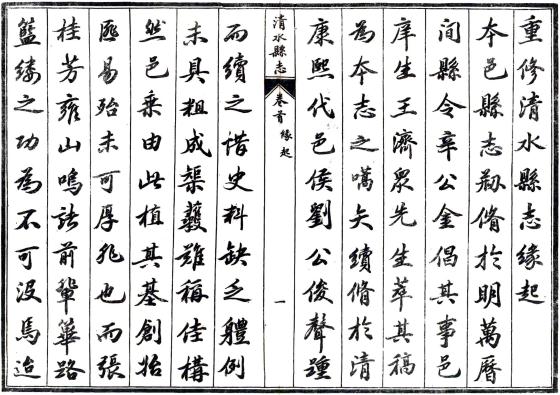 重修清水縣志緣起
本邑縣志剏脩於明萬曆
間縣令辛公金倡其事邑
庠生王濟衆先生萃其稿
為本志之嚆矢續脩於清
康熙代邑侯劉公俊聲踵
清水縣志
卷首 緣起
一
而續之惜史料缺乏體例
未具粗成榘蒦雖稱佳構
然邑乘由此植其基創始
匪易殆未可厚非也而張
桂芳雍山鳴諸前輩篳路
籃縷之功為不可沒焉迨